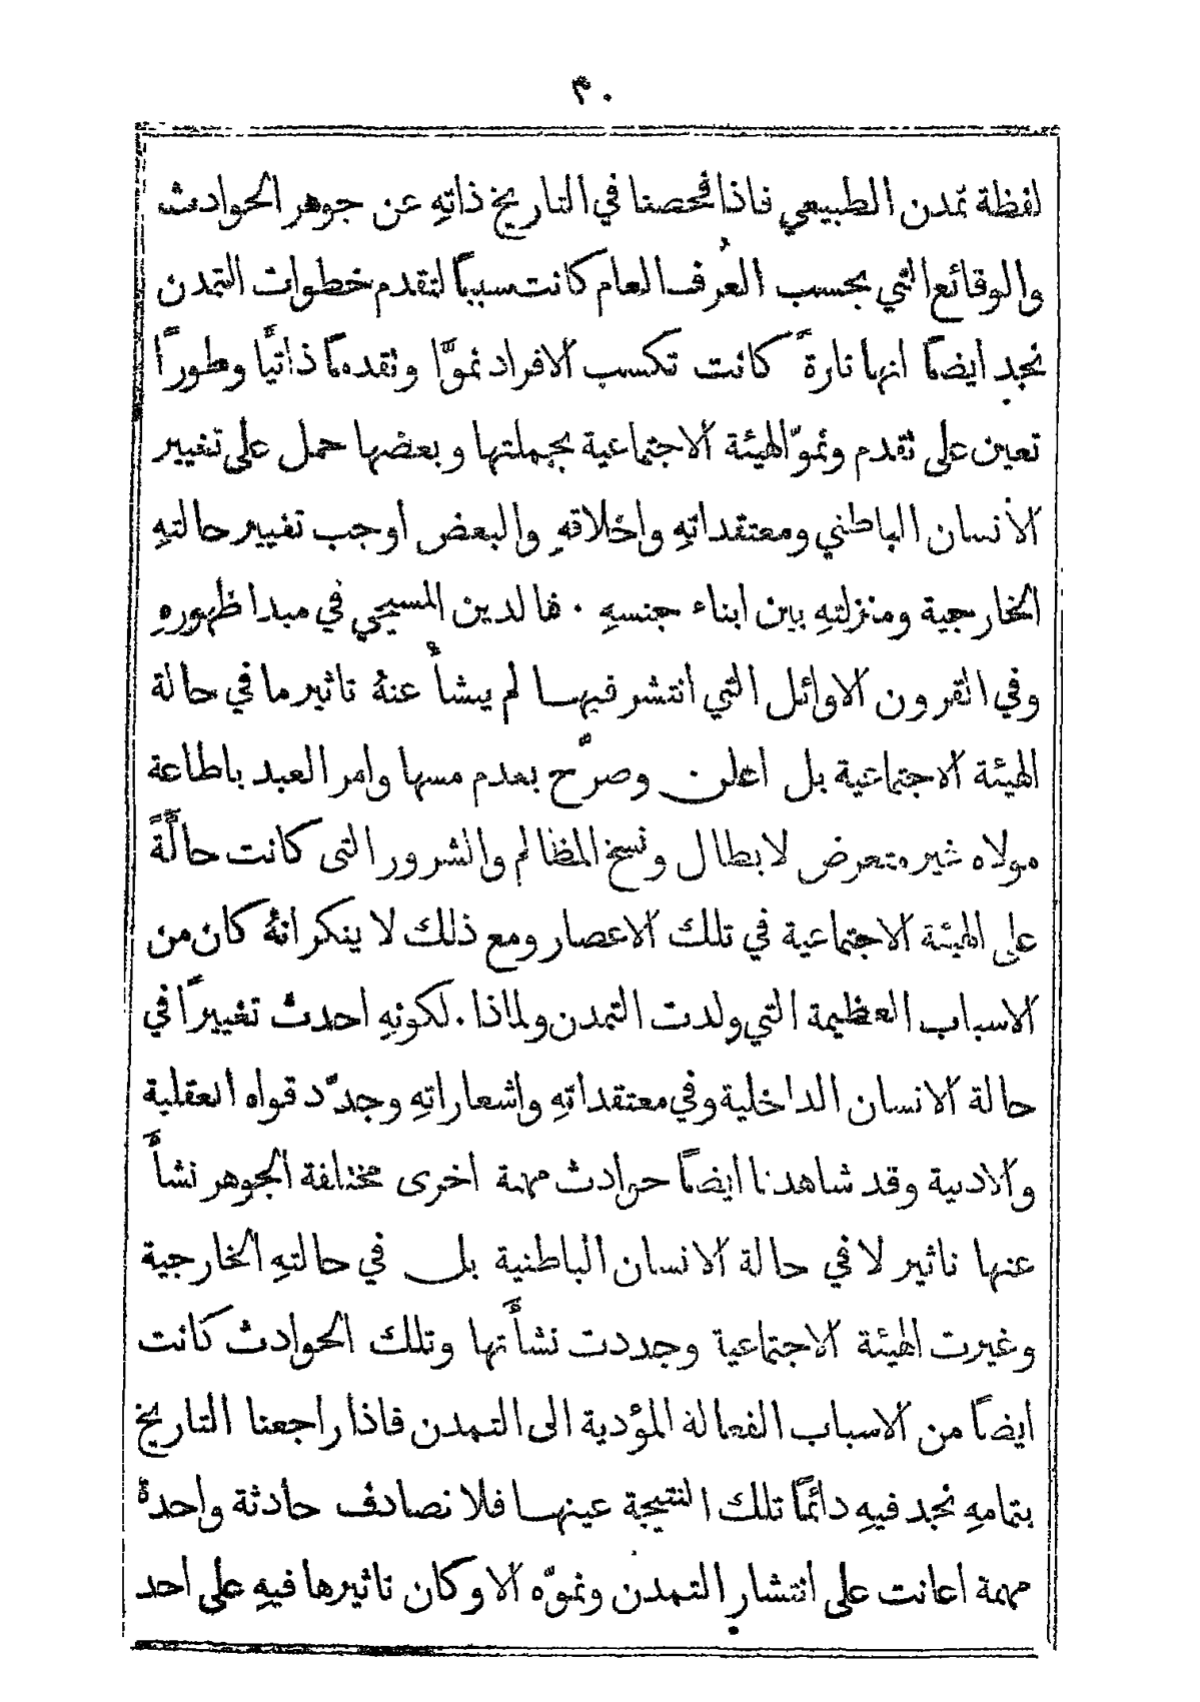 ٣٠
لفظة تمدن الطبيعي فاذا فحصنا في التاريخ ذاتهِ عن جوهر الحوادث
والوقائع التي بحسب العُرف العام كانت سببًا لتقدم خطوات التمدن
نجد ايضًا انها تارةً كانت تكسب الافراد نموًّا وتقدمًا ذاتيًّا وطورًا
تعين على تقدم ونموّ الهيئة الاجتماعية بجملتها وبعضها حمل على تغيير
الانسان الباطني ومعتقداتهِ واخلاقهِ والبعض اوجب تغيير حالتهِ
الخارجية ومنزلتهِ بين ابناء جنسهِ . فالدين المسيحي في مبدا ظهورهِ
وفي القرون الاوائل التي انتشر فيها لم ينشأ عنهُ تاثير ما في حالة
الهيئة الاجتماعية بل اعلن وصرَّح بعدم مسها وامر العبد باطاعة
مولاه غير متعرض لابطال ونسخ المظالم والشرور التى كانت حالَّةً
على الهيئة الاجتماعية في تلك الاعصار ومع ذلك لا ينكر انهُ كان من
الاسباب العظيمة التي ولدت التمدن ولماذا . لكونهِ احدث تغييرًا في
حالة الانسان الداخلية وفي معتقداتهِ واشعاراتهِ وجدّد قواه العقلية
والادبية وقد شاهدنا ايضًا حوادث مهمة اخرى مختلفة الجوهر نشأَ
عنها تاثير لا في حالة الانسان الباطنية بل في حالتهِ الخارجية
وغيرت الهيئة الاجتماعية وجددت نشأَتها وتلك الحوادث كانت
ايضًا من الاسباب الفعالة المؤدية الى التمدن فاذا راجعنا التاريخ
بتمامهِ نجد فيهِ دائمًا تلك النتيجة عينها فلا نصادف حادثة واحدة
مهمة اعانت على انتشار التمدن ونموّه الا وكان تاثيرها فيهِ على احد